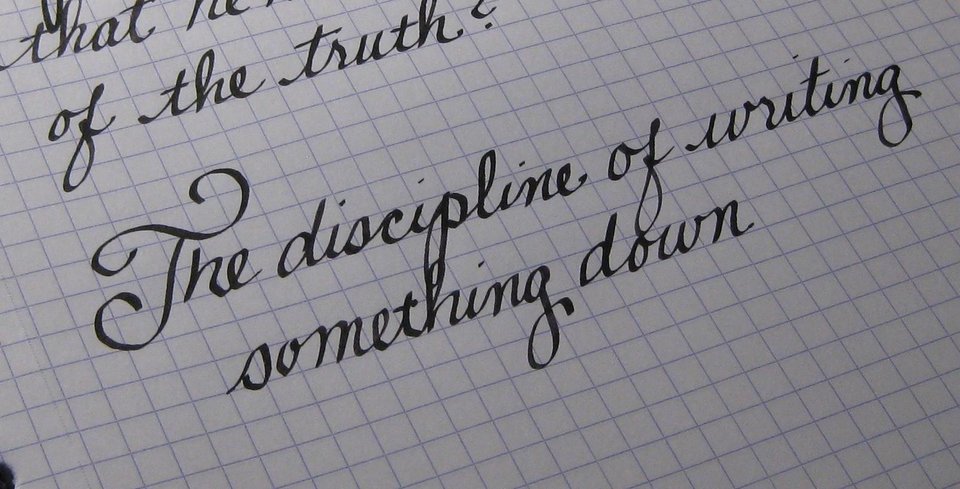 that
of the truth?
The discipline of writing
something down